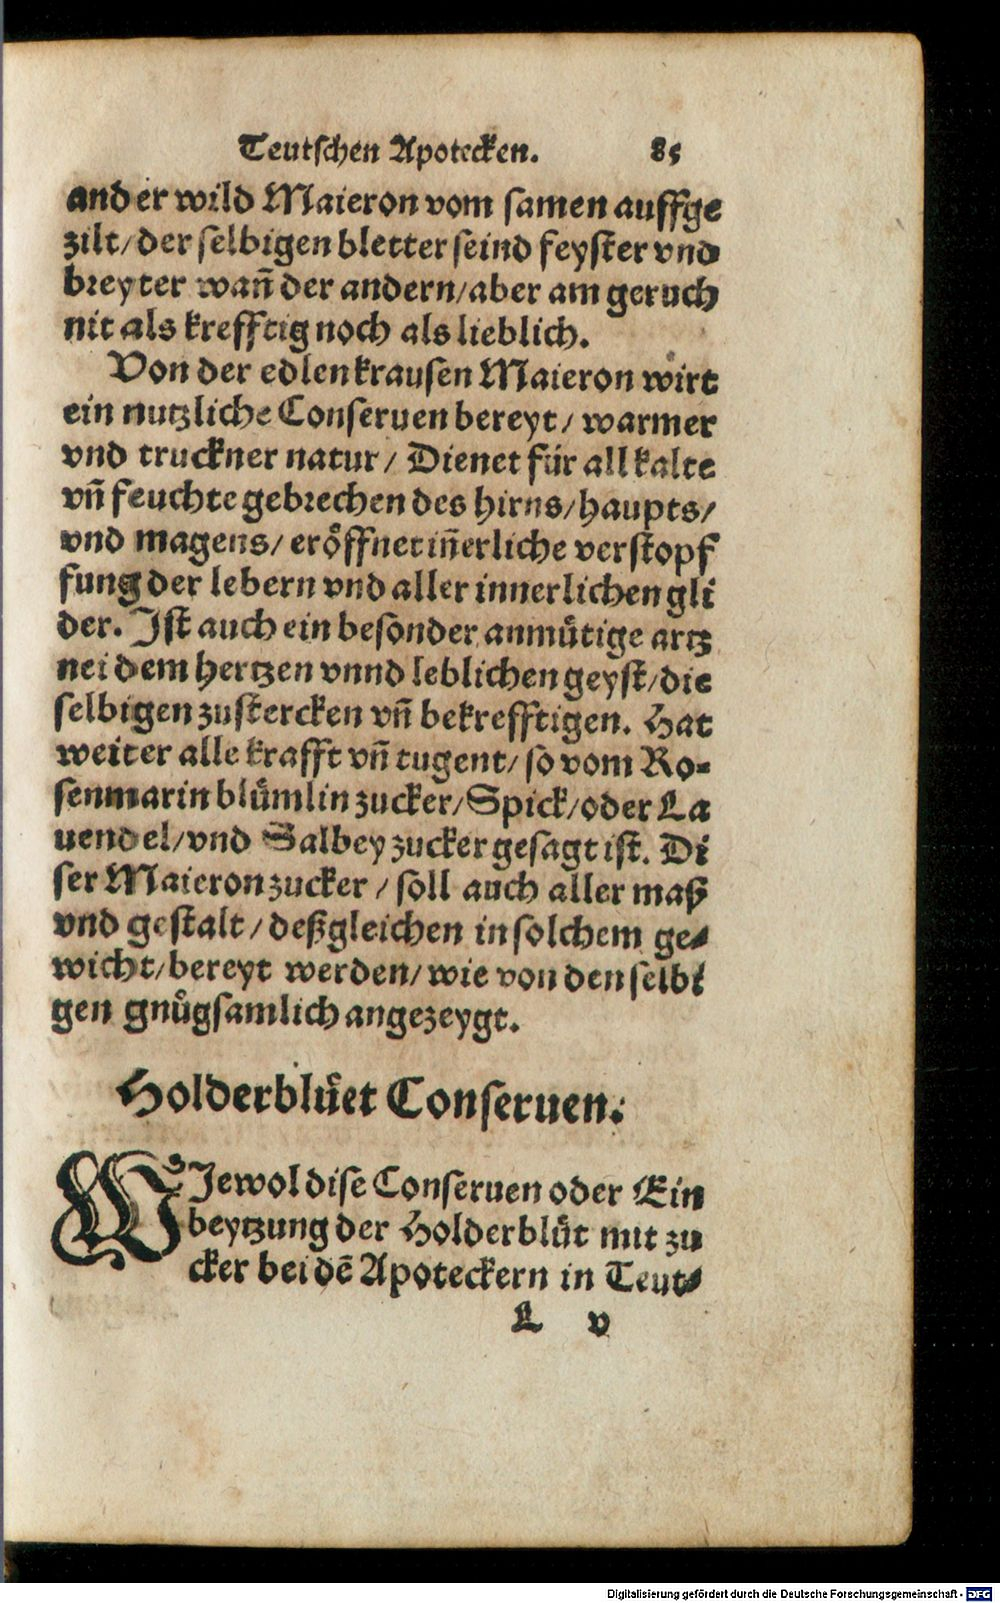 Teutschen Apotecken. 85
ander wild Maieron vom samen auffge
zilt/ der selbigen bletter seind feyster vnd
breyter wañ der andern/ aber am geruch
nit als krefftig noch als lieblich.
Von der edlen krausen Maieron wirt
ein nutzliche Conseruen bereyt/ warmer
vnd truckner natur/ Dienet für all kalte
vñ feuchte gebrechen des hirns/ haupts/
vnd magens/ eröffnet iñerliche verstopf
fung der lebern vnd aller innerlichen gli
der. Ist auch ein besonder anmuͤtige artz
nei dem hertzen vnnd leblichen geyst/ die
selbigen zustercken vñ bekrefftigen. Hat
weiter alle krafft vñ tugent/ so vom Ro-
senmarin bluͤmlin zucker/ Spick/ oder La
uendel/ vnd Salbey zucker gesagt ist. Di
ser Maieron zucker / soll auch aller maß
vnd gestalt/ deßgleichen in solchem ge-
wicht/ bereyt werden/ wie von den selbi
gen gnuͤgsamlich angezeygt.
Holderbluͤet Conseruen.
WJewol dise Conseruen oder Ein
beytzung der Holderbluͤt mit zu
cker bei dē Apoteckern in Teut-
L v
Digitalisierung gefördert durch die Deutsche Forschungsgemeinschaft - DFG